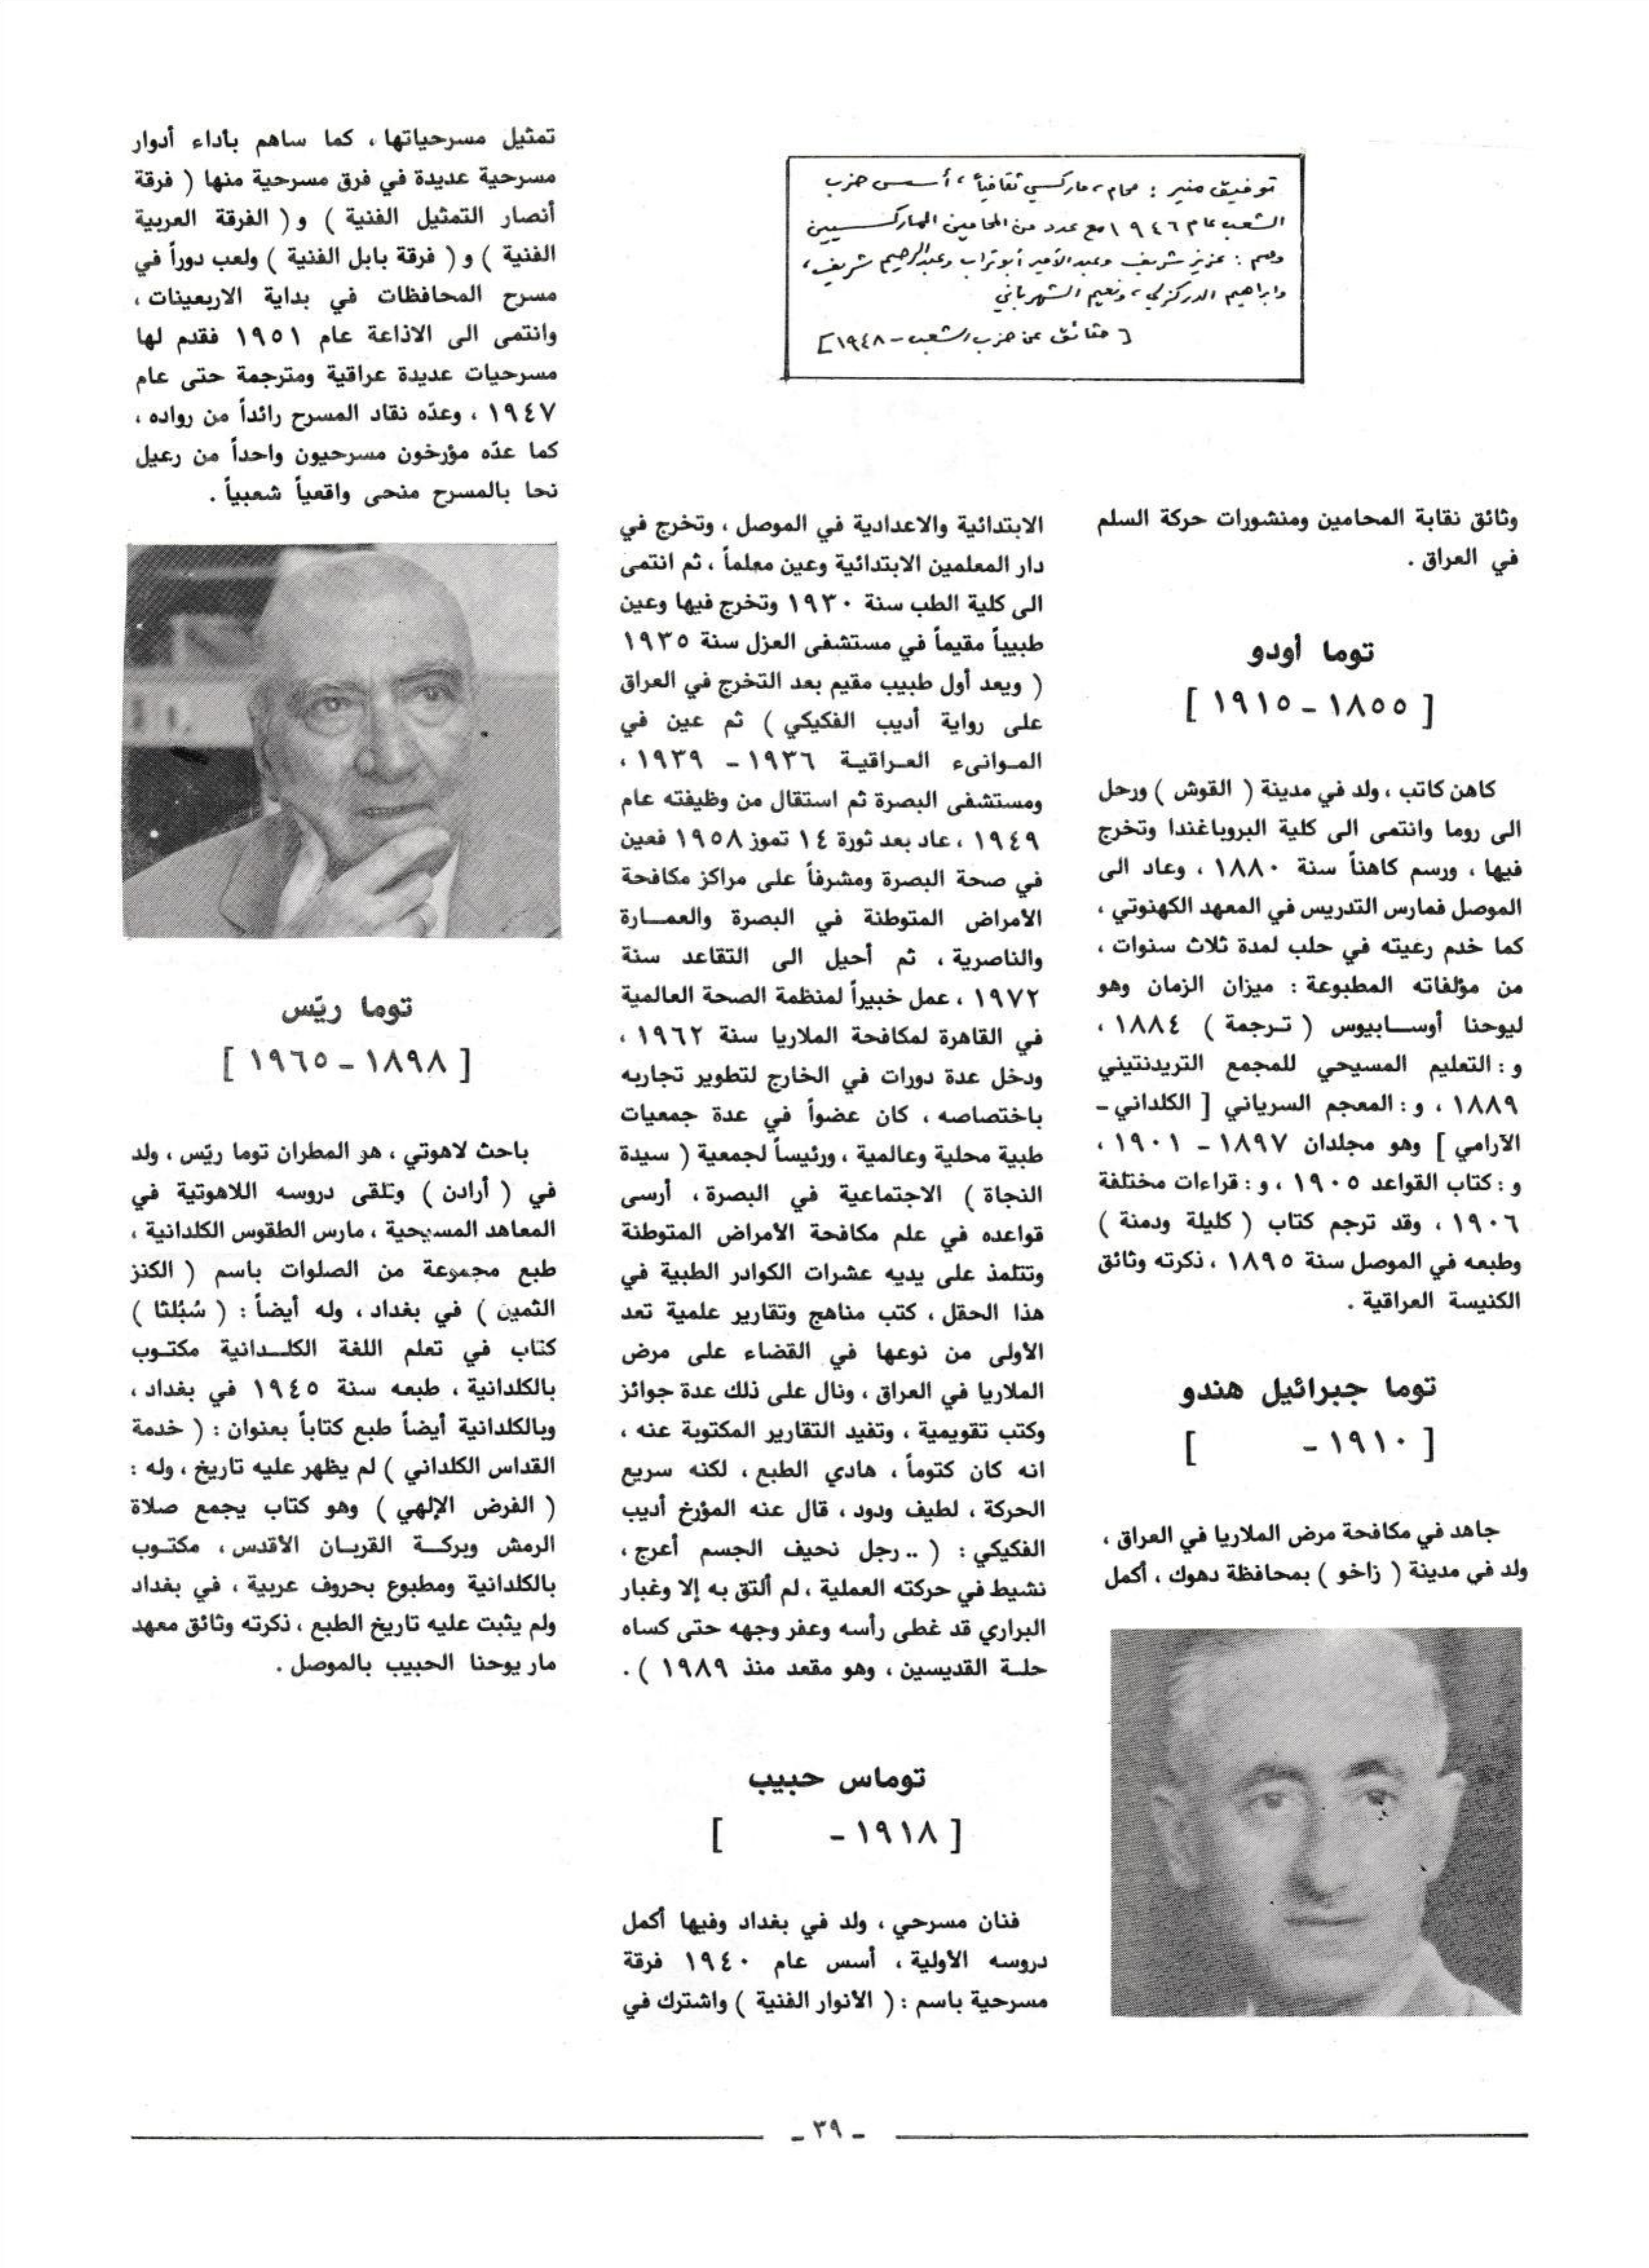 توفيق منير : محام ، ماركسي ثقافياً ، أسس حزب
الشعب عام ١٩٤٦ مع عدد من المحامين الماركسيين
وهم : عزيز شريف وعبد الأمير أبو تراب وعبد الرحيم شريف ،
وابراهيم الدركزلي ، ونعيم الشهرباني
[ حقائق عن حزب الشعب - ١٩٤٨ ]
وثائق نقابة المحامين ومنشورات حركة السلم
في العراق .
توما أودو
[ ١٨٥٥ - ١٩١٥ ]
كاهن كاتب ، ولد في مدينة ( القوش ) ورحل
الى روما وانتمى الى كلية البروباغندا وتخرج
فيها ، ورسم كاهناً سنة ١٨٨٠ ، وعاد الى
الموصل فمارس التدريس في المعهد الكهنوتي ،
كما خدم رعيته في حلب لمدة ثلاث سنوات ،
من مؤلفاته المطبوعة : ميزان الزمان وهو
ليوحنا أوسابيوس ( ترجمة ) ١٨٨٤ ،
و : التعليم المسيحي للمجمع التريدنتيني
١٨٨٩ ، و : المعجم السرياني [ الكلداني -
الآرامي ] وهو مجلدان ١٨٩٧ - ١٩٠١ ،
و : كتاب القواعد ١٩٠٥ ، و : قراءات مختلفة
١٩٠٦ ، وقد ترجم كتاب ( كليلة ودمنة )
وطبعه في الموصل سنة ١٨٩٥ ، ذكرته وثائق
الكنيسة العراقية .
توما جبرائيل هندو
[ ١٩١٠ - ]
جاهد في مكافحة مرض الملاريا في العراق ،
ولد في مدينة ( زاخو ) بمحافظة دهوك ، أكمل
الابتدائية والاعدادية في الموصل ، وتخرج في
دار المعلمين الابتدائية وعين معلماً ، ثم انتمى
الى كلية الطب سنة ١٩٣٠ وتخرج فيها وعين
طبيباً مقيماً في مستشفى العزل سنة ١٩٣٥
( ويعد أول طبيب مقيم بعد التخرج في العراق
على رواية أديب الفكيكي ) ثم عين في
الموانىء العراقية ١٩٣٦ - ١٩٣٩ ،
ومستشفى البصرة ثم استقال من وظيفته عام
١٩٤٩ ، عاد بعد ثورة ١٤ تموز ١٩٥٨ فعين
في صحة البصرة ومشرفاً على مراكز مكافحة
الأمراض المتوطنة في البصرة والعمارة
والناصرية ، ثم أحيل الى التقاعد سنة
١٩٧٢ ، عمل خبيراً لمنظمة الصحة العالمية
في القاهرة لمكافحة الملاريا سنة ١٩٦٢ ،
ودخل عدة دورات في الخارج لتطوير تجاربه
باختصاصه ، كان عضواً في عدة جمعيات
طبية محلية وعالمية ، ورئيساً لجمعية ( سيدة
النجاة ) الاجتماعية في البصرة ، أرسى
قواعده في علم مكافحة الأمراض المتوطنة
وتتلمذ على يديه عشرات الكوادر الطبية في
هذا الحقل ، كتب مناهج وتقارير علمية تعد
الأولى من نوعها في القضاء على مرض
الملاريا في العراق ، ونال على ذلك عدة جوائز
وكتب تقويمية ، وتفيد التقارير المكتوبة عنه ،
انه كان كتوماً ، هادي الطبع ، لكنه سريع
الحركة ، لطيف ودود ، قال عنه المؤرخ أديب
الفكيكي : ( .. رجل نحيف الجسم أعرج ،
نشيط في حركته العملية ، لم ألتق به إلا وغبار
البراري قد غطى رأسه وعفر وجهه حتى كساه
حلة القديسين ، وهو مقعد منذ ١٩٨٩ ) .
توماس حبيب
[ ١٩١٨ - ]
فنان مسرحي ، ولد في بغداد وفيها أكمل
دروسه الأولية ، أسس عام ١٩٤٠ فرقة
مسرحية باسم : ( الأنوار الفنية ) واشترك في
تمثيل مسرحياتها ، كما ساهم بأداء أدوار
مسرحية عديدة في فرق مسرحية منها ( فرقة
أنصار التمثيل الفنية ) و ( الفرقة العربية
الفنية ) و ( فرقة بابل الفنية ) ولعب دوراً في
مسرح المحافظات في بداية الاربعينات ،
وانتمى الى الاذاعة عام ١٩٥١ فقدم لها
مسرحيات عديدة عراقية ومترجمة حتى عام
١٩٤٧ ، وعدّه نقاد المسرح رائداً من رواده ،
كما عدّه مؤرخون مسرحيون واحداً من رعيل
نحا بالمسرح منحى واقعياً شعبياً .
توما ريّس
[ ١٨٩٨ - ١٩٦٥ ]
باحث لاهوتي ، هو المطران توما ريّس ، ولد
في ( أرادن ) وتلقى دروسه اللاهوتية في
المعاهد المسيحية ، مارس الطقوس الكلدانية ،
طبع مجموعة من الصلوات باسم ( الكنز
الثمين ) في بغداد ، وله أيضاً : ( شبلثا )
كتاب في تعلم اللغة الكلدانية مكتوب
بالكلدانية ، طبعه سنة ١٩٤٥ في بغداد ،
وبالكلدانية أيضاً طبع كتاباً بعنوان : ( خدمة
القداس الكلداني ) لم يظهر عليه تاريخ ، وله :
( الفرض الإلهي ) وهو كتاب يجمع صلاة
الرمش وبركة القربان الأقدس ، مكتوب
بالكلدانية ومطبوع بحروف عربية ، في بغداد
ولم يثبت عليه تاريخ الطبع ، ذكرته وثائق معهد
مار يوحنا الحبيب بالموصل .
- ٣٩ -